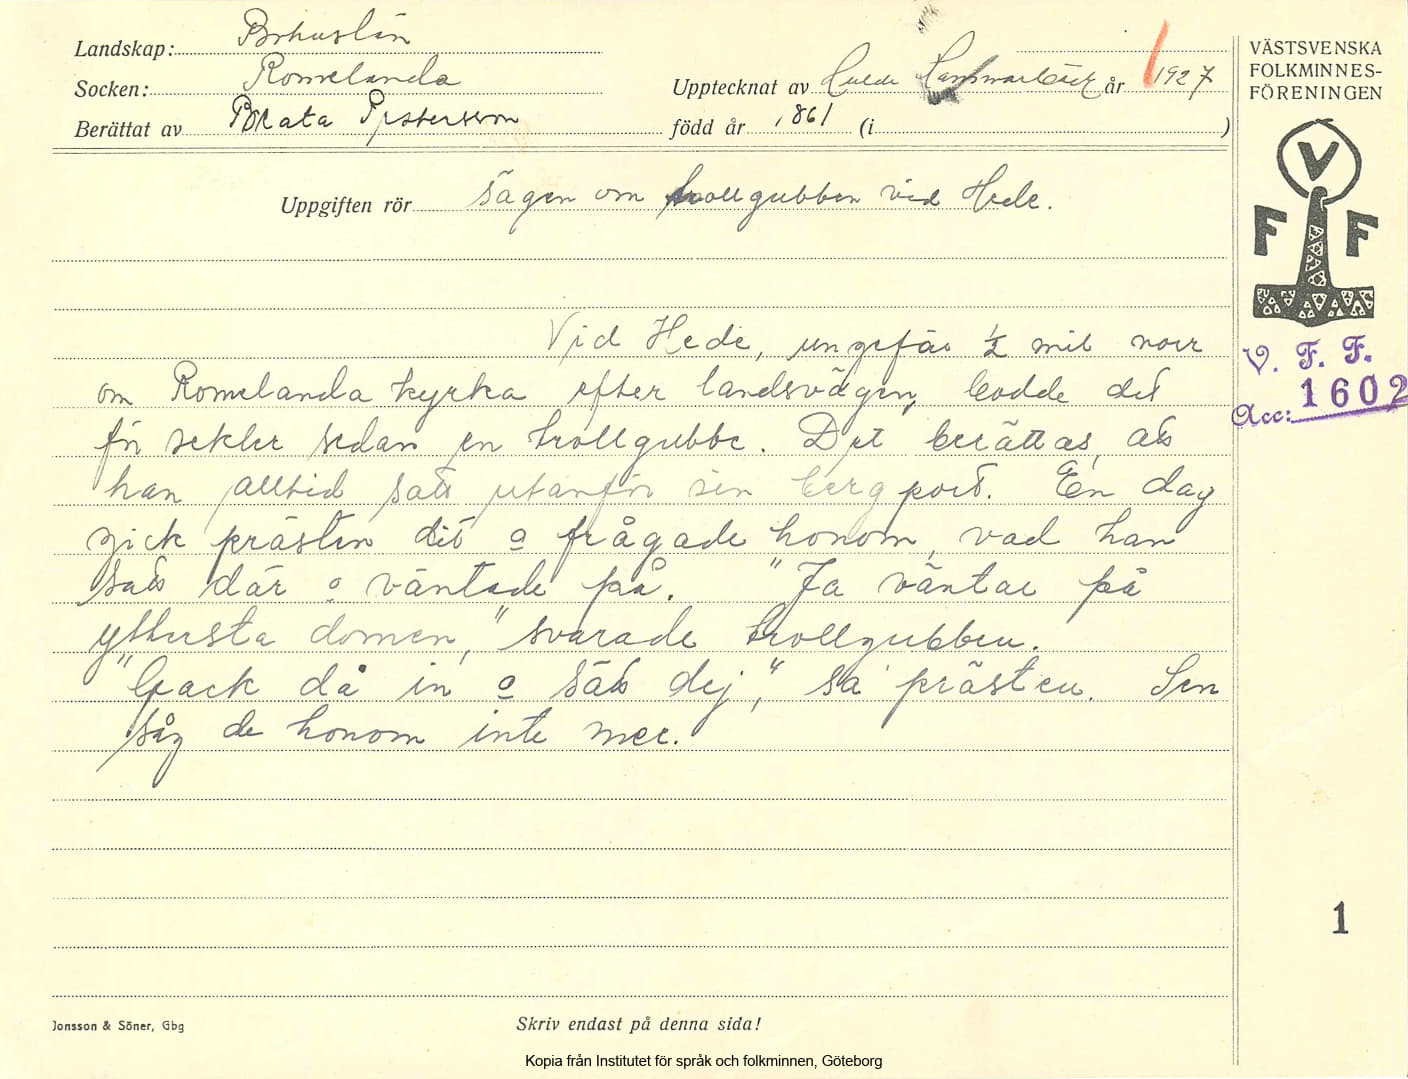 Landskap: Bohuslän
Socken: Romelanda
Berättat av Beata Pettersson
Upptecknat av Hulda Hammarbäck år 1927
född år 1861 (i )
Uppgiften rör sägen om trollgubben vid Hede.
Vid Hede, ungefär ½ mil norr
om Romelanda kyrka efter landsvägen, bodde det
för sekler sedan en trollgubbe. Det berättas, att
han alltid satt utanför sin bergport. En dag
gick prästen dit o frågade honom, vad han
satt där o väntade på. "Ja väntar på
yttersta domen," svarade trollgubben.
"Gack då in o sätt dej," sa prästen. Sen
såg de honom inte mer.
VÄSTSVENSKA
FOLKMINNES-
FÖRENINGEN
V
F F
V. F. F.
Acc: 1602
1
Jonsson & Söner, Gbg
Skriv endast på denna sida!
Kopia från Institutet för språk och folkminnen, Göteborg